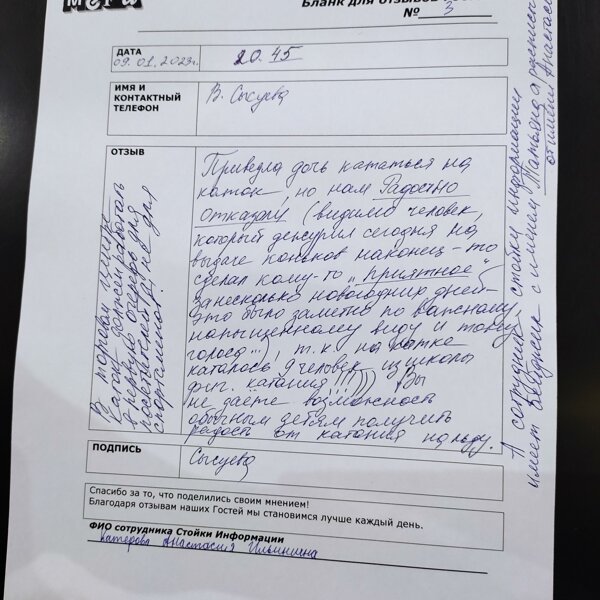 МЕГА
Бланк для отзывов
№ 3
ДАТА
09.01.2023г. 20.45
ИМЯ И
КОНТАКТНЫЙ
ТЕЛЕФОН
В. Сысуева
ОТЗЫВ
Привела дочь кататься на
каток, но нам Радостно
отказали (видимо человек,
который дежурил сегодня на
выдаче коньков наконец-то
сделал кому-то "приятное"
за несколько новогодних дней-
это было заметно по важному
напыщенному виду и тону
голоса...), т.к. на катке
каталось 9 человек из школы
фиг. катания!!!)))) Вы
не даете возможность
обычным детям получить
радость от катания на льду.
В торговом центре
каток должен работать
в первую очередь для
посетителей, а не для
спортсменов!
А сотрудник стойки информации
имеет бейджик с именем Татьяна, а расписы
от имени Анастаси
ПОДПИСЬ
Сысуева
Спасибо за то, что поделились своим мнением!
Благодаря отзывам наших Гостей мы становимся лучше каждый день.
ФИО сотрудника Стойки Информации
Катерова Анастасия Ильинична